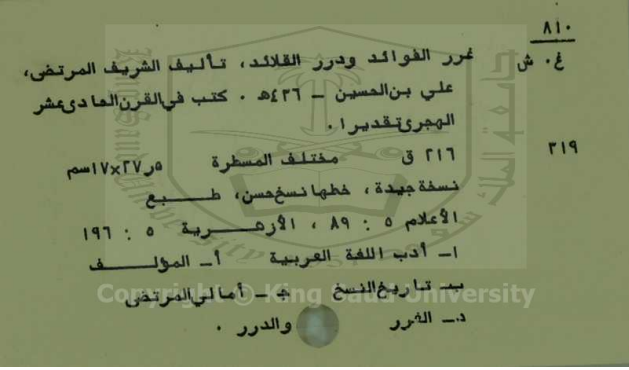 ٨١٠
غ . ش
غرر الفوائد ودرر القلائد، تأليف الشريف المرتضى،
علي بن الحسين ـ ٤٣٦هـ . كتب في القرن الحادي عشر
الهجري تقديرا .
٣١٩
٢١٦ ق مختلف المسطرة ٥ر٢٧×١٧سم
نسخة جيدة ، خطها نسخ حسن، طبع
الأعلام ٥ : ٨٩ ، الأزهرية ٥ : ١٩٦
١ـ أدب اللغة العربية أ ـ المؤلف
ب ـ تاريخ النسخ ج ـ أمالي المرتضى
د ـ الغرر والدرر .
Copyright © King Saud University